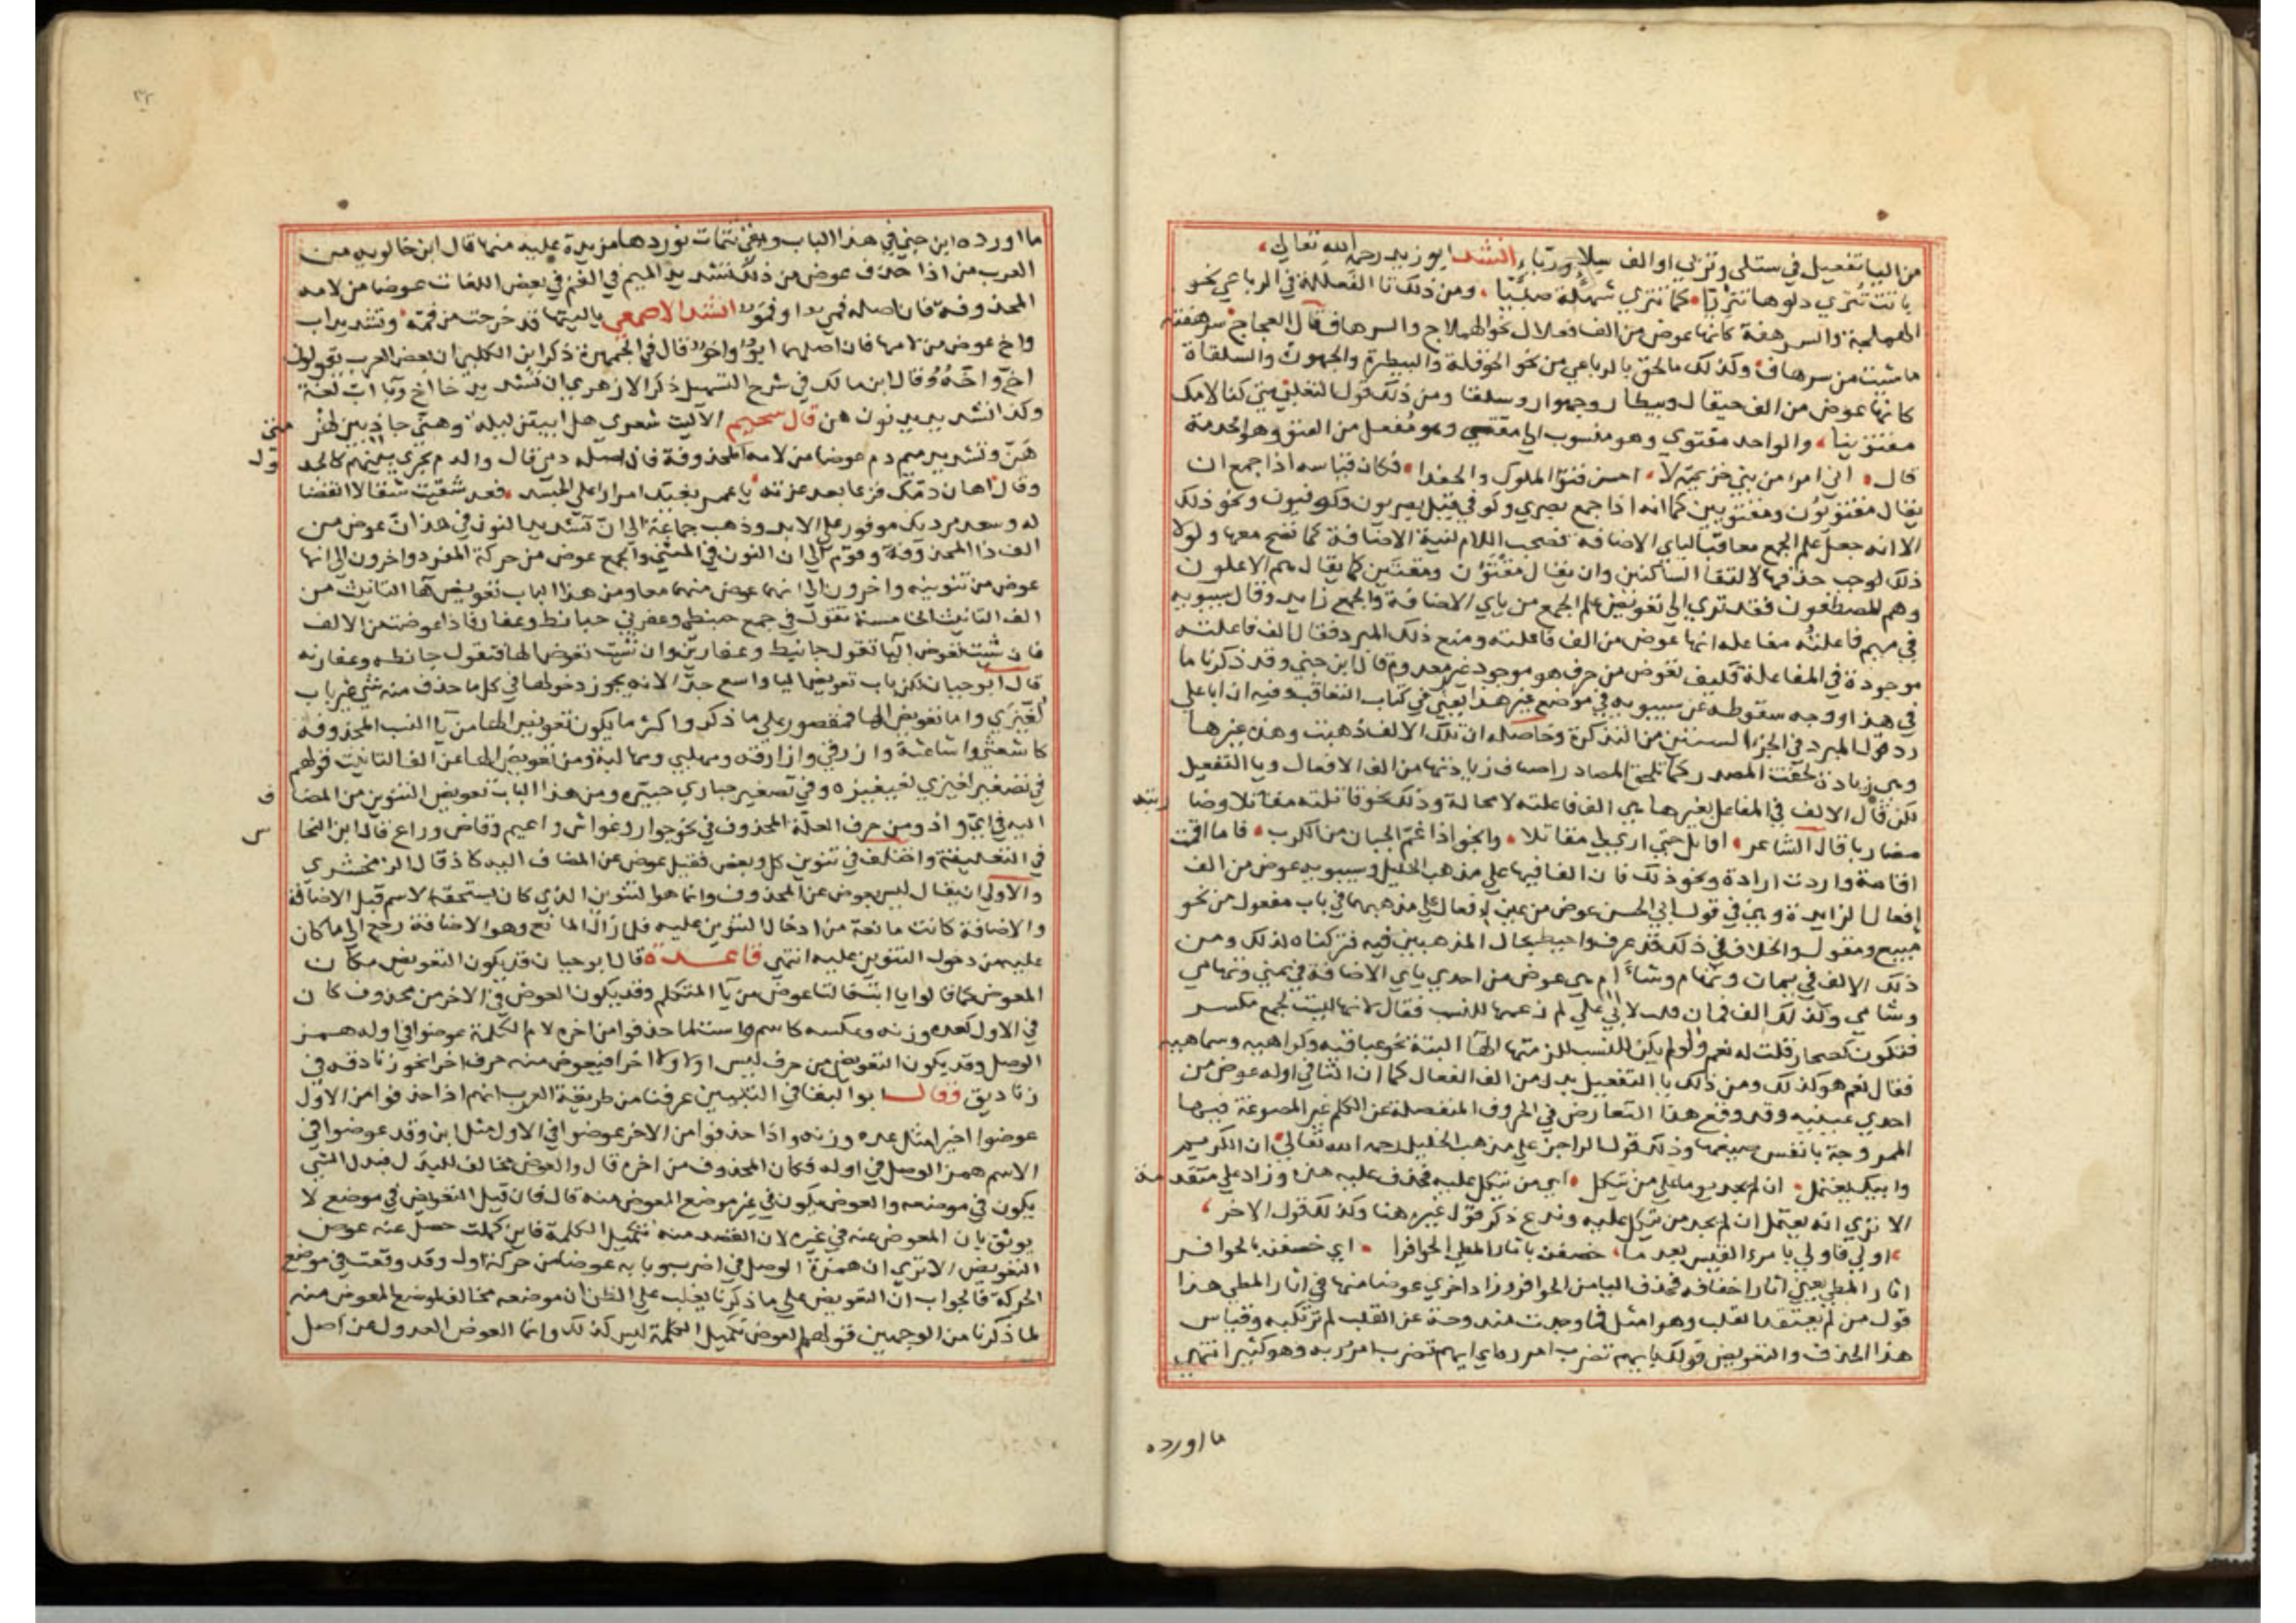 من اليا تفعيل في ستلي وتزلي او الف سيلا وزباء انشد ابو زيد رحمه الله تعالي
باتت تنزي دلوها تنزيا كما تنزي شهلة صبيا ومن ذلك تا الفعللة في الرباعي نحو
الهملجة والسرهفة كانها عوض من الف فعلال نحو الهملاج والسرهاف قال العجاج سرهفته
ما شيت من سرهاف وكذلك ما لحق بالرباعي من نحو الحوقلة والبيطرة والجهورة والسلقاة
كانها عوض من الف حيقال وبيطار وجهوار وسلقا ومن ذلك قول التغلبي متي كنا لامك
مقتوينا والواحد مقتوي وهو منسوب الي مقتي وهو مفعل من القتو وهو الخدمة
قال اني امرء من بني خزيمة لا احسن قتو الملوك والحفدا فكان قياسه اذا جمع ان
يقال مقتويون ومقتويين كما انه اذا جمع بصري وكوفي قيل بصريون وكوفيون ونحو ذلك
الا انه جعل علم الجمع معاقبا لياي الاضافة فصحت اللام لنية الاضافة كما تصح معها ولولا
ذلك لوجب حذفها لالتقا الساكنين وان يقال مقتون ومقتين كما يقال هم الاعلون
وهم المصطفون فقد تري الي تعويض علم الجمع من ياي الاضافة والجمع زايد وقال سيبويه
في ميم فاعلته مفاعلة انها عوض من الف فاعلته ومنع ذلك المبرد فقال الف فاعلته
موجودة في المفاعلة فكيف تعوض من حرف هو موجود غير معدوم قال ابن جني وقد ذكرنا ما
في هذا ووجه سقوطه عن سيبويه في موضع غير هذا يعني في كتاب التعاقب وفيه ان ابا علي
رد قول المبرد في الجزء الستين من التذكرة وحاصله ان تلك الالف ذهبت وهذه غيرها
وهي زيادة لحقت المصدر كما تلحق المصادر اصناف زيادتها من الف الافعال ويا التفعيل
لكن قال الالف في المفاعل بغير هاء هي الف فاعلته لا محالة وذلك نحو قاتلته مقاتلا وضاربته
مضاربا قال الشاعر اقاتل حتي لا اري لي مقاتلا وانجو اذا غم الجبان من الكرب فاما اقمت
اقامة واردت ارادة ونحو ذلك فان الها فيها علي مذهب الخليل وسيبويه عوض من الف
افعال الزايدة وهي في قول ابي الحسن عوض من عين افعال علي مذهبهما في باب مفعول من نحو
مبيع ومقول والخلاف في ذلك قد عرف واحيط بحال المذهبين فيه فتركناه لذلك ومن
ذلك الالف في يمان وتهام وشاءام هي عوض من احدي ياي الاضافة في يمني وتهامي
وشامي وكذلك الف ثمان قلت لابي علي لم زعمها للنسب فقال لانها ليست بجمع مكسر
فتكون كصحار قلت له نعم ولو لم يكن للنسب للزمتها الها البتة نحو عباقية وكراهية وسباهية
فقال نعم هو كذلك ومن ذلك يا التفعيل بدل من الف الفعال كما ان التا في اوله عوض من
احدي عينيه وقد وقع هذا التعارض في الحروف المنفصلة عن الكلم غير المصوغة فيها
الممزوجة بانفس صيغها وذلك قول الراجز علي مذهب الخليل رحمه الله تعالي ان الكريم
وابيك يعتمل ان لم يجد يوما علي من يتكل اي من يتكل عليه فحذف عليه هذه وزاد علي متقدمة
الا تري انه يعتمل ان لم يجد من يتكل عليه وندع ذكر قول غيره هنا وكذلك قول الاخر
اولي فاولي يا مرء القيس بعد ما خصفن باثار المطي الحوافرا اي خصفن بالحوافر
اثار المطي يعني اثار اخفافه فحذف البا من الحوافر وزاد اخري عوضا منها في اثار المطي هذا
قول من لم يعتقد القلب وهو امثل فما وجدت مندوحة عن القلب لم ترتكبه وقياس
هذا الحذف والتعويض قولك بايهم تضرب امرر اي ايهم تضرب امرر به وهو كثير انتهي
ما اورده
٣٢
ما اورده ابن جني في هذا الباب وبقي تتمات نوردها مزيدة عليه منها قال ابن خالويه من
العرب من اذا حذف عوض من ذلك تشديد الميم في الفم في بعض اللغات عوضا من لامه
المحذوفة فان اصله فمي او فمو انشد الاصمعي يا ليتها قد خرجت من فمه وتشديد اب
واخ عوض من لامها فان اصلهما ابو واخو قال في الجمهرة ذكر ابن الكلبي ان بعض العرب يقولون
اخ واخة وقال ابن مالك في شرح التسهيل ذكر الازهري ان تشديد خا اخ وبا اب لغة
وكذا تشديد نون هن قال سحيم الا ليت شعري هل ابيتن ليلة وهني جاذ بين لهزمتي
هن وتشديد ميم دم عوضا من لامه المحذوفة فان اصله دمي قال والدم يجري بينهم كالجدول
وقال اهان دمك فرغا بعد عزته يا عمرو بغيك اصرارا علي الحسد فقد شقيت شقا لا انقضا
له وسعد مرديك موفور علي الابد وذهب جماعة الي ان تشديد النون في هذان عوض من
الف ذا المحذوفة وقوم الي ان النون في المثني والجمع عوض من حركة المفرد واخرون الي انها
عوض من تنوينه واخرون الي انها عوض منهما معا ومن هذا الباب تعويض ها التانيث من
الف التانيث الخامسة تقول في جمع حبنطي وعفرني حبانط وعفارن فاذا عوضت من الالف
فان شيت تعوض اليا تقول حبانيط وعفارين وان شيت تعوض الها فتقول حبانطة وعفارنة
قال ابو حيان لكن باب تعويض اليا واسع جدا لانه يجوز دخولها في كل ما حذف منه شي غير باب
لغيزي واما تعويض الها فمقصور علي ما ذكر واكثر ما يكون تعويض الها من يا النسب المحذوفة
كاشعثي واشاعثة وازرقي وازارقة ومهلبي ومهالبة ومن تعويض الها عن الف التانيث قولهم
في تصغير لغيزي لغيغيزه وفي تصغير حباري حبيره ومن هذا الباب تعويض التنوين من المضاف
اليه في اي واذ ومن حرف العلة المحذوف في نحو جوار وغواش واعيم وقاض وراع قال ابن النحاس
في التعليقة واختلف في تنوين كل وبعض فقيل عوض عن المضاف اليه كاذ قال الزمخشري
والاولي ان يقال ليس بعوض عن المحذوف وانما هو التنوين الذي كان يستحقه الاسم قبل الاضافة
والاضافة كانت مانعة من ادخال التنوين عليه فلما زال المانع وهو الاضافة رجع الي ما كان
عليه من دخول التنوين عليه انتهي قاعدة قال ابو حيان قد يكون التعويض مكان
المعوض كما قالوا يا ابت فالتا عوض من يا المتكلم وقد يكون العوض في الاخر من محذوف كان
في الاول كعده وزنه وعكسه كاسم واست لما حذفوا من اخره لام الكلمة عوضوا في اوله همز
الوصل وقد يكون التعويض من حرف ليس اولا ولا اخرا فيعوض منه حرف اخرا نحو زنادقه في
زناديق وقال ابو البقا في التبيين عرفنا من طريقة العرب انهم اذا حذفوا من الاول
عوضوا اخيرا مثل عده وزنه واذا حذفوا من الاخر عوضوا في الاول مثل ابن وقد عوضوا في
الاسم همز الوصل في اوله فكان المحذوف من اخره قال والعوض مخالف للبدل فبدل الشي
يكون في موضعه والعوض يكون في غير موضع المعوض منه قال فان قيل التعويض في موضع لا
يوثق بان المعوض عنه في غيره لان القصد منه تكميل الكلمة فاين كملت حصل عنه عوض
التعويض الا تري ان همزة الوصل في اضرب وبابه عوضا من حركة اول وقد وقعت في موضع
الحركة فالجواب ان التعويض علي ما ذكرنا يغلب علي الظن ان موضعه مخالف لموضع المعوض منه
لما ذكرنا من الوجهين قولهم العوض تكميل الكلمة ليس كذلك وانما العوض العدول عن اصل